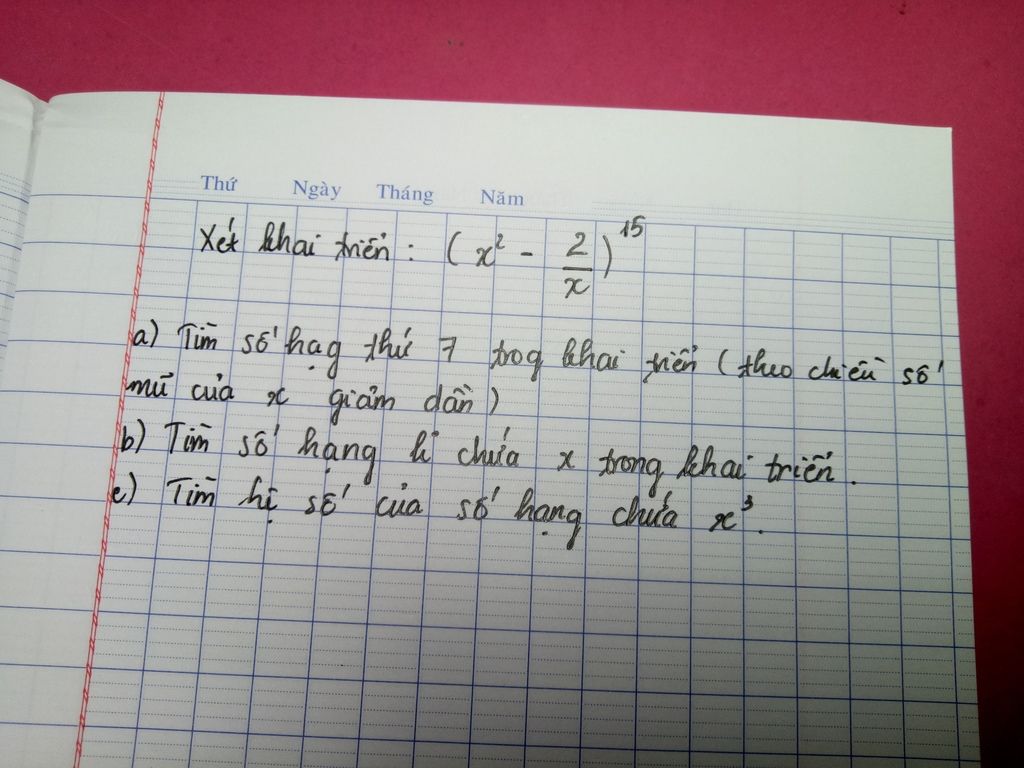 Thứ Ngày Tháng Năm
Xét khai triển : ( x² - 2/x )¹⁵
a) Tìm số hạg thứ 7 trog khai triển ( theo chiều số
mũ của x giảm dần )
b) Tìm số hạng k chứa x trong khai triển .
c) Tìm hệ số của số hạng chứa x³ .